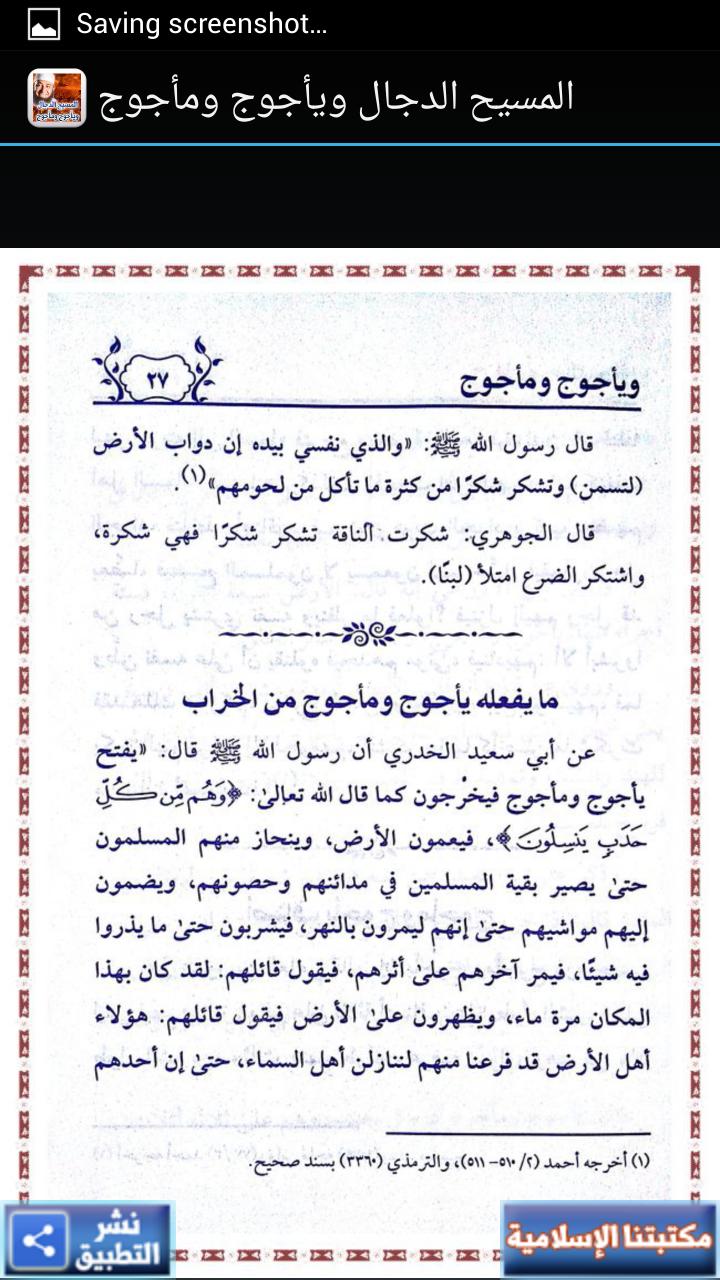 Saving screenshot...
المسيح الدجال ويأجوج ومأجوج
ويأجوج ومأجوج
٢٧
قال رسول الله ﷺ: «والذي نفسي بيده إن دواب الأرض
(لتسمن) وتشكر شكرًا من كثرة ما تأكل من لحومهم»(١).
قال الجوهري: شكرت الناقة تشكر شكرًا فهي شكرة،
واشتكر الضرع امتلأ (لبنًا).
ما يفعله يأجوج ومأجوج من الخراب
عن أبي سعيد الخدري أن رسول الله ﷺ قال: «يفتح
يأجوج ومأجوج فيخرجون كما قال الله تعالىٰ: ﴿وَهُم مِّن كُلِّ
حَدَبٍ يَنسِلُونَ﴾، فيعمون الأرض، وينحاز منهم المسلمون
حتىٰ يصير بقية المسلمين في مدائنهم وحصونهم، ويضمون
إليهم مواشيهم حتىٰ إنهم ليمرون بالنهر، فيشربون حتىٰ ما يذروا
فيه شيئًا، فيمر آخرهم علىٰ أثرهم، فيقول قائلهم: لقد كان بهذا
المكان مرة ماء، ويظهرون علىٰ الأرض فيقول قائلهم: هؤلاء
أهل الأرض قد فرعنا منهم لننازلن أهل السماء، حتىٰ إن أحدهم
(١) أخرجه أحمد (٢/ ٥١٠- ٥١١)، والترمذي (٣٣٦٠) بسند صحيح.
نشر
التطبيق
مكتبتنا الإسلامية